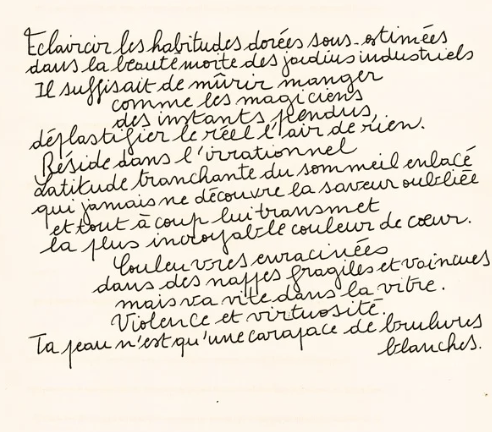 Eclaircir les habitudes dorées sous-estimées
dans la beauté moite des jardins industriels
Il suffisait de mûrir manger
comme les magiciens
des instants pendus,
déplastifier le réel l'air de rien.
Réside dans l'irrationnel
Latitude tranchante du sommeil enlacé
qui jamais ne découvre la saveur oubliée
et tout à coup lui transmet
la plus incroyable couleur de cœur.
Couleuvres enracinées
dans des nappes fragiles et vaincues
mais va vite dans la vitre.
Violence et virtuosité.
Ta peau n'est qu'une carapace de brulures
blanches.